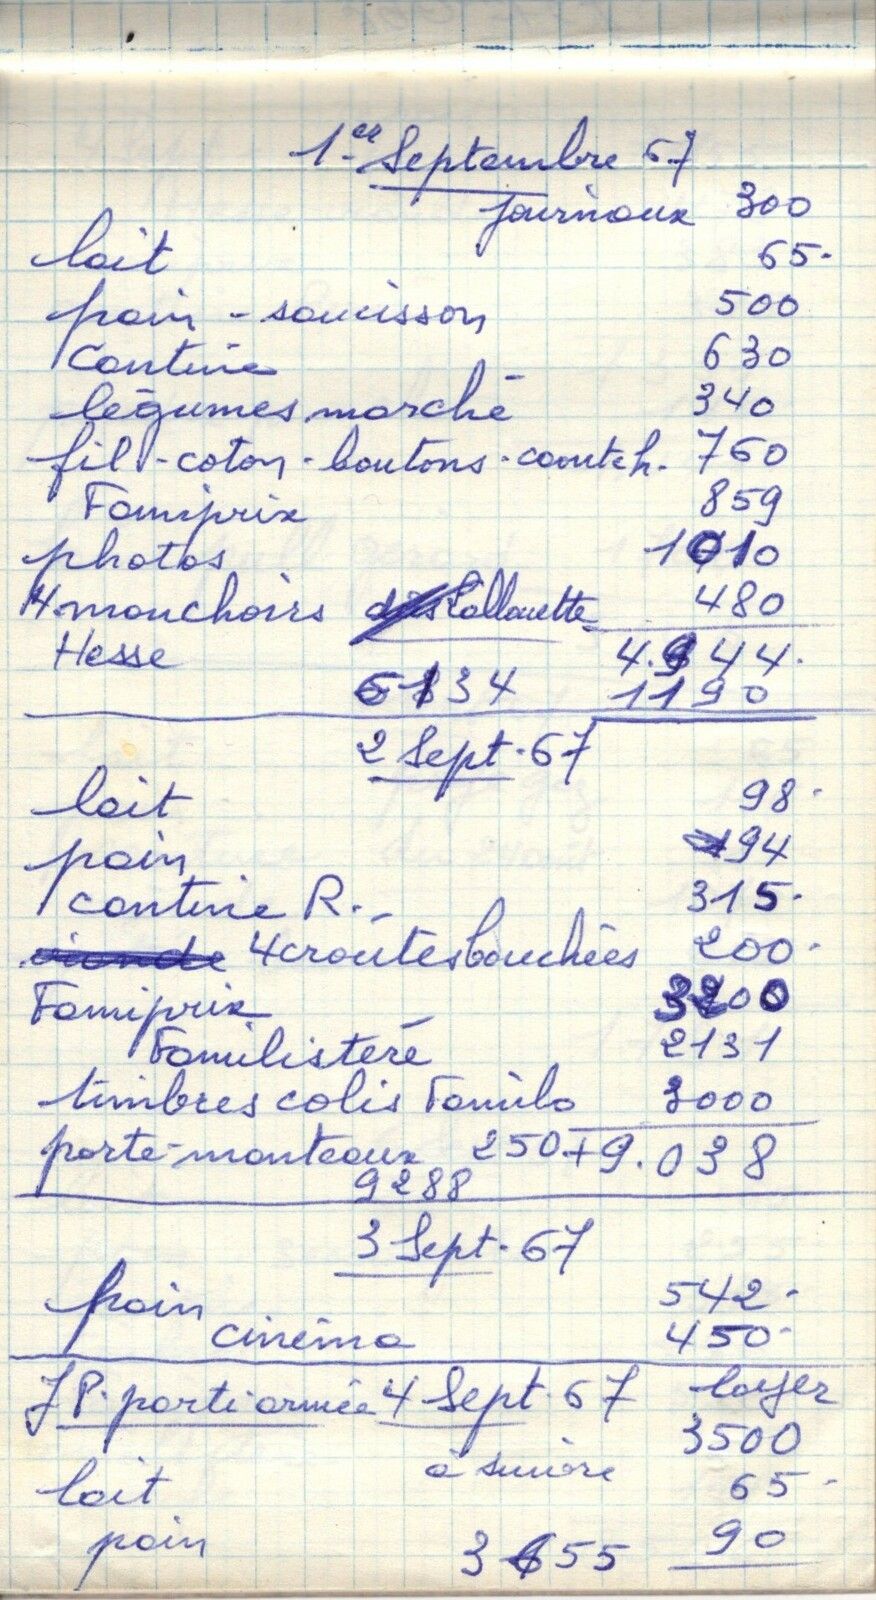 1er Septembre 67
journaux 300
lait 65.
pain - saucisson 500
Cantine 630
légumes marché 340
fil - coton - boutons - caoutch. 760
Famiprix 859
photos 1010
4 mouchoirs Lallouette 480
Hesse 4.944.
6134 1190
2 Sept. 67
lait 98.
pain 94
cantine R. 315.
4 croûtes bouchées 200.
Famiprix 3200
Familistère 2131
timbres colis Familo 3000
porte-manteaux 250 + 9.038
9288
3 Sept. 67
pain 542.
cinéma 450.
J P. parti armée 4 Sept. 67 loyer
3500
à suivre
lait 65.
pain 3655 90